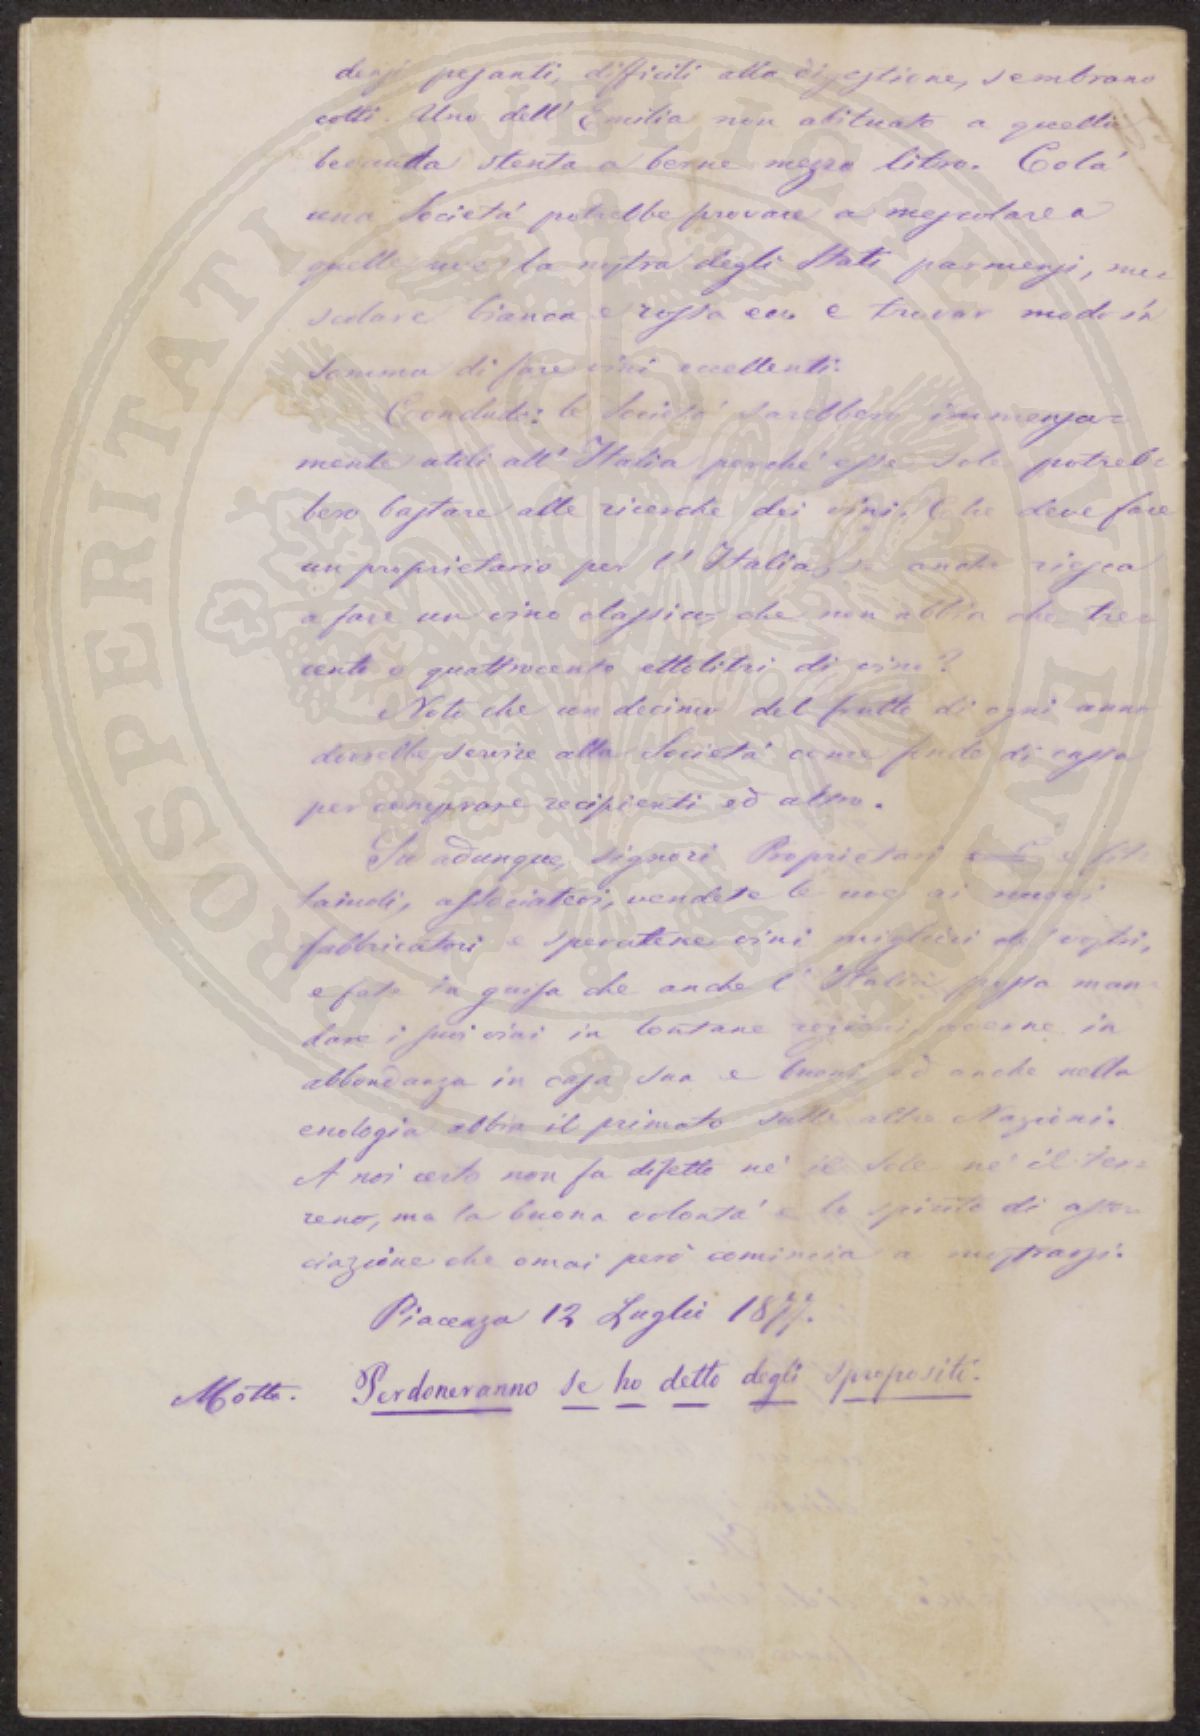 densi, pesanti, difficili alla digestione, sembrano
cotti. Uno dell' Emilia non abituato a quella
bevanda stenta a berne mezzo litro. Colá
una Societá potrebbe provare a mescolare a
quelle uve la nostra degli Stati parmensi, me=
scolare bianca e rossa ecc. e trovar modo in
somma di fare vini eccellenti.
Concludo: le Societá sarebbero immensa=
mente utili all' Italia perché esse sole potreb=
bero bastare alle ricerche dei vini. Che deve fare
un proprietario per l' Italia, se anche riesca
a fare un vino classico, che non abbia che tre=
cento o quattrocento ettolitri di vino?
Noto che un decimo del frutto di ogni anno
dovrebbe servire alla Societá come fondo di cassa
per comprare recipienti ed altro.
Su adunque, signori Proprietari e fit=
taiuoli, associatevi, vendete le uve ai nuovi
fabbricatori e speratene vini migliori de' vostri,
e fate in guisa che anche l' Italia possa man=
dare i suoi vini in lontane regioni, averne in
abbondanza in casa sua e buoni, ed anche nella
enologia abbia il primato sulle altre Nazioni.
A noi certo non fa difetto né il sole né il ter=
reno, ma la buona volontá e lo spirito di asso=
ciazione che omai peró comincia a mostrarsi.
Piacenza 12 Luglio 1877.
Motto. Perdoneranno se ho detto degli spropositi.
PROSPERITATI PVBLICAE